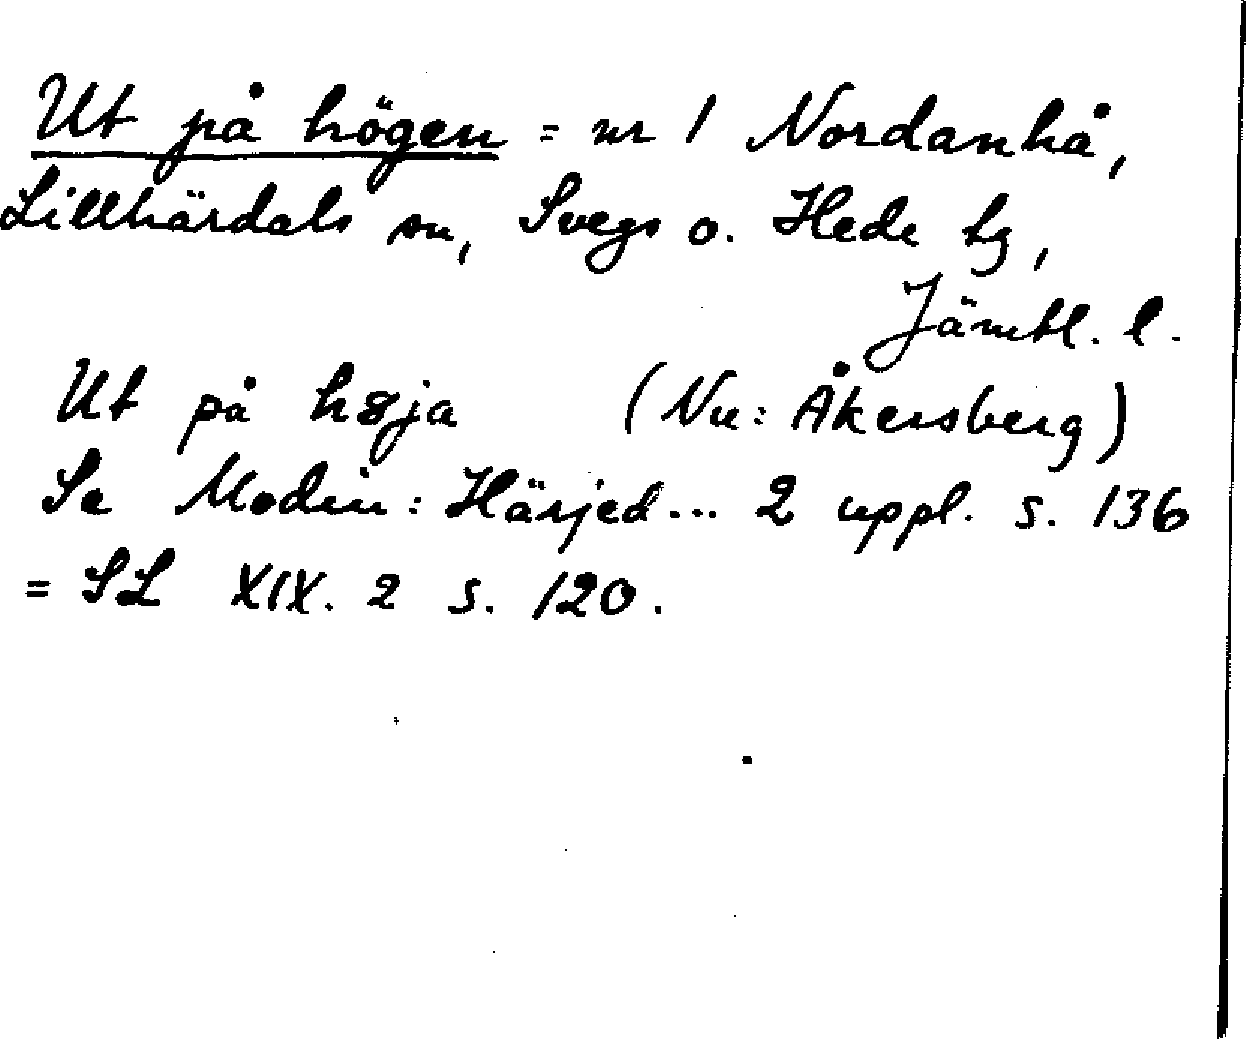 Ut på högen = nr 1 Nordanhå,
Lillhärdals sn, Svegs o. Hede tg,
Jämtl. l.
Ut på høja (Nu: Åkersberg)
Se Modin: Härjed... 2 uppl. s. 136
= SL XIX. 2 s. 120.